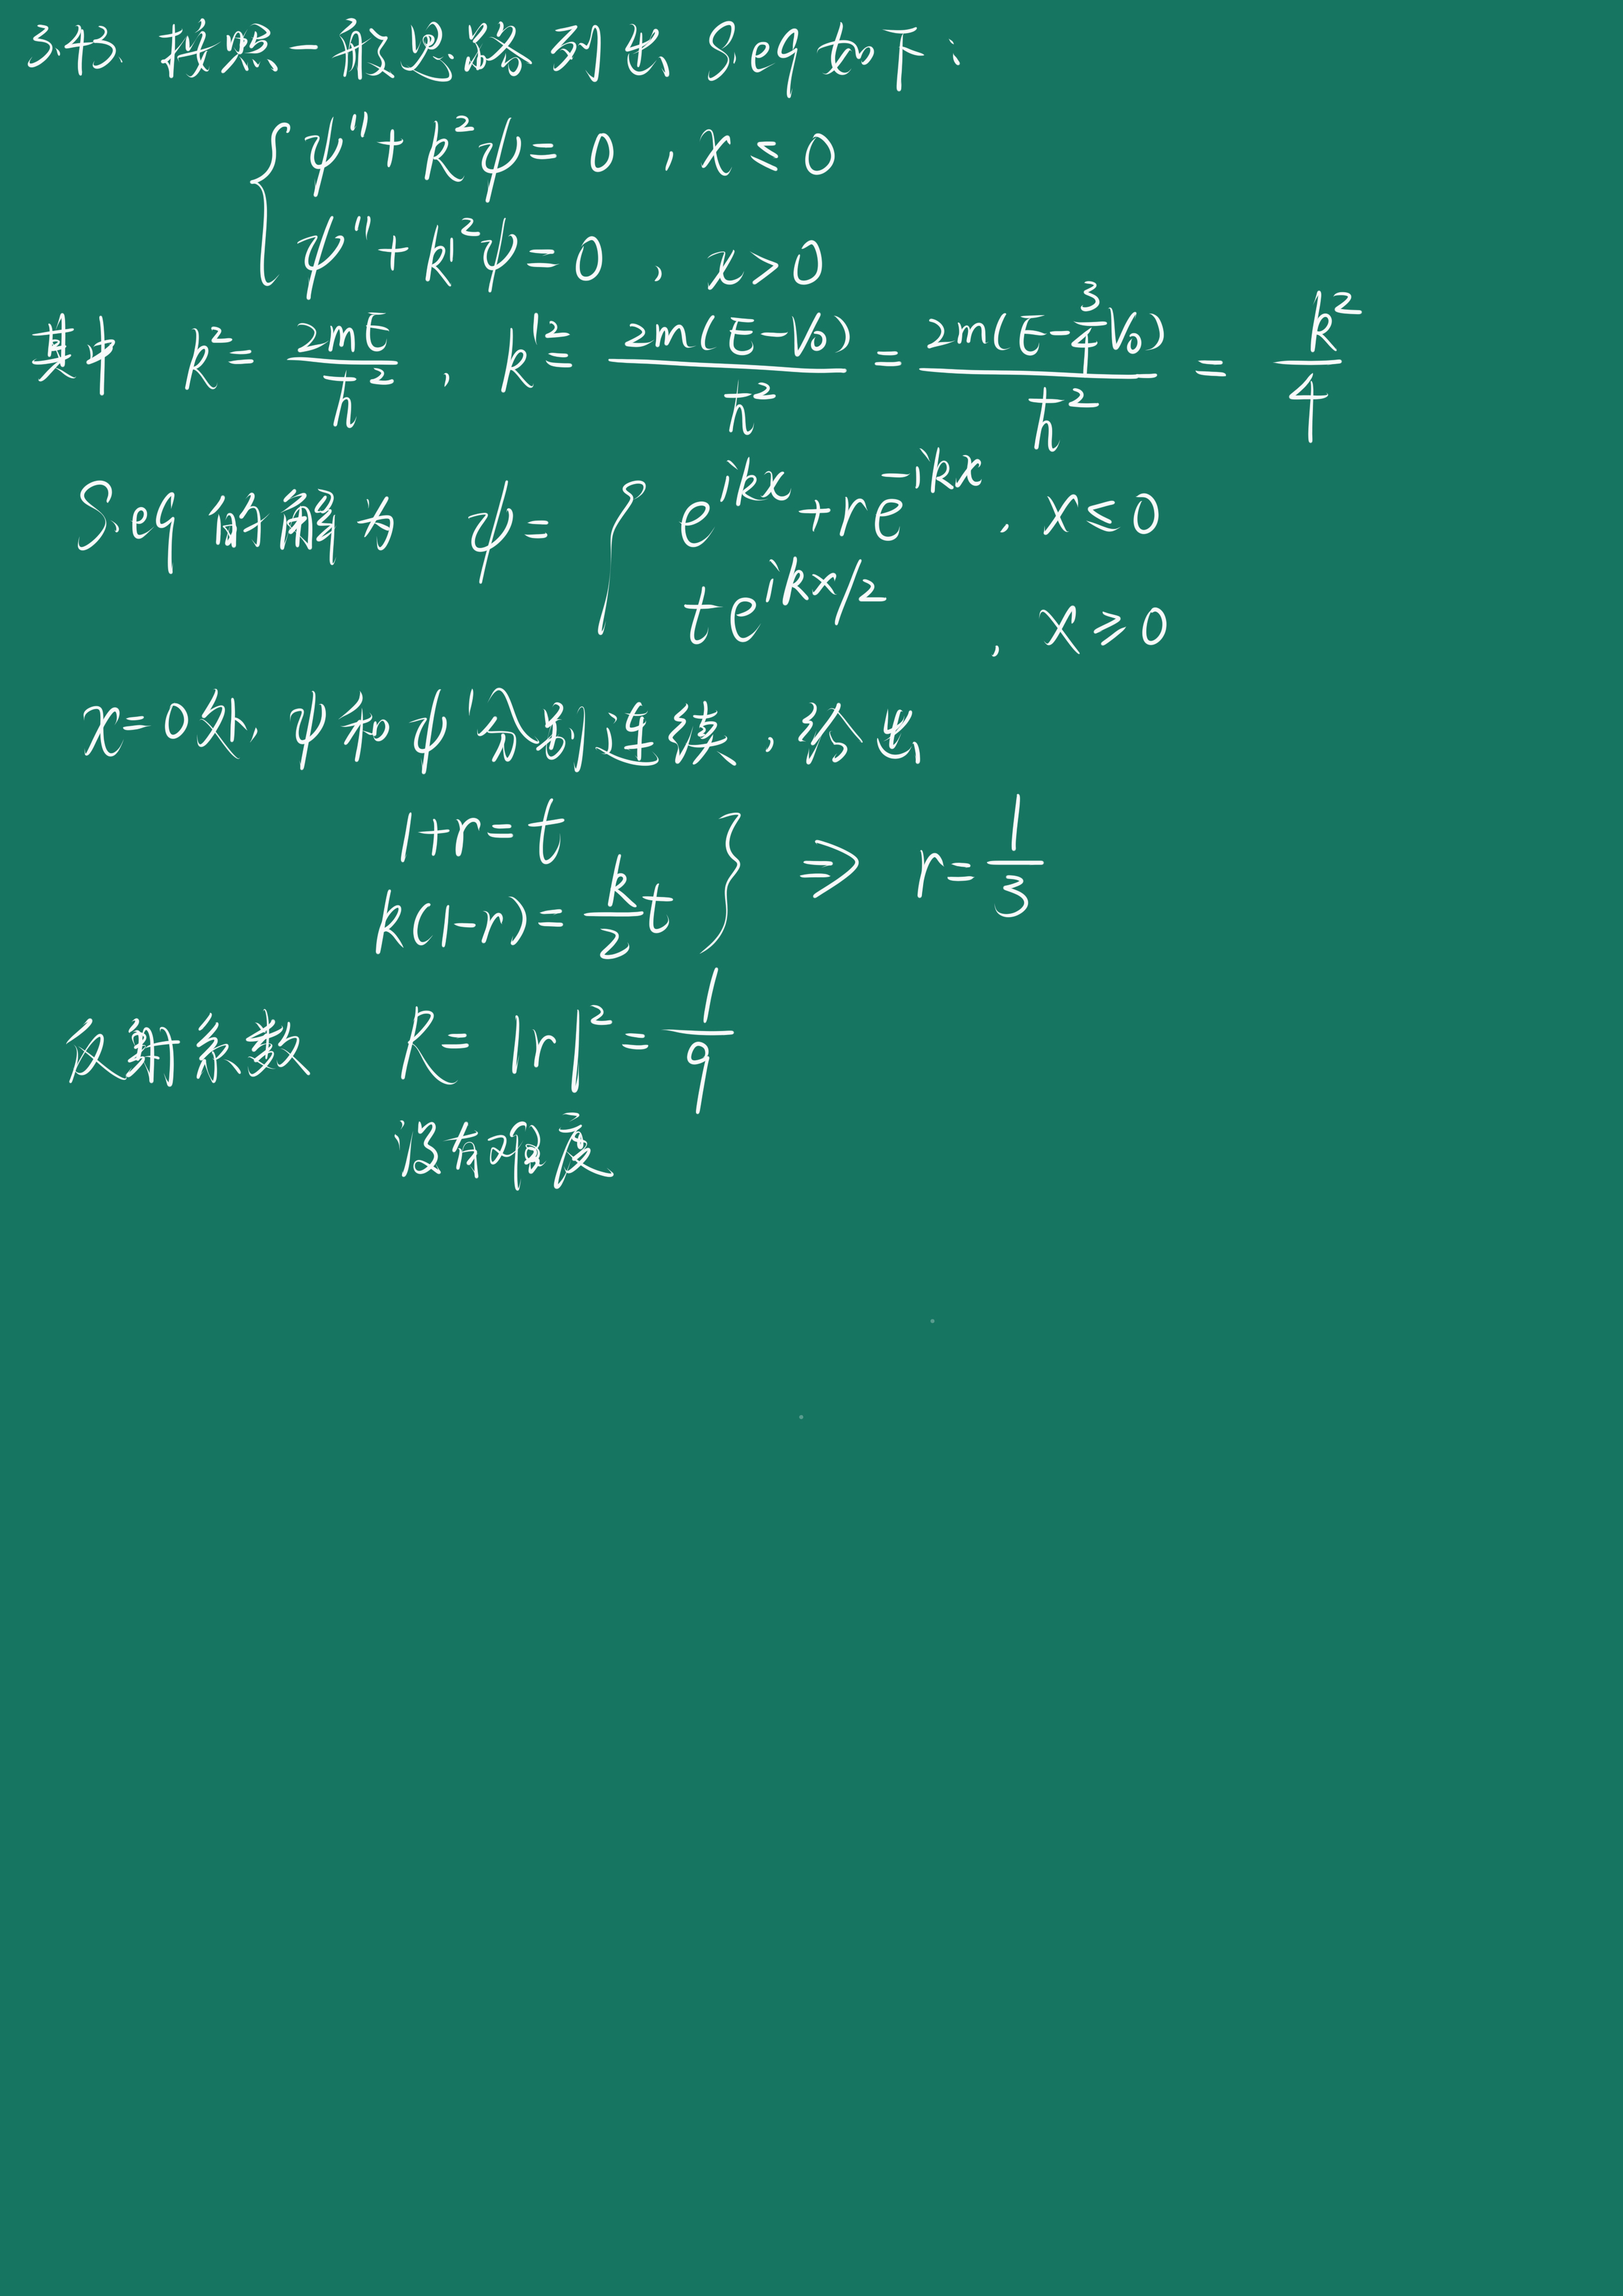 3.43. 按照一般思路列出 S.eq 如下：
ψ'' + k²ψ = 0 , x ≤ 0
ψ'' + k'²ψ = 0 , x > 0
其中 k² = 2mE/ħ² , k'² = 2m(E-V₀)/ħ² = 2m(E-¾V₀)/ħ² = k²/4
S.eq 的解为 ψ = { e^{ikx} + re^{-ikx} , x ≤ 0
te^{ikx/2} , x ≥ 0
x=0处, ψ和ψ'分别连续, 给出
1+r=t
k(1-r) = k/2 t } ⇒ r = 1/3
反射系数 R = |r|² = 1/9
没有难度